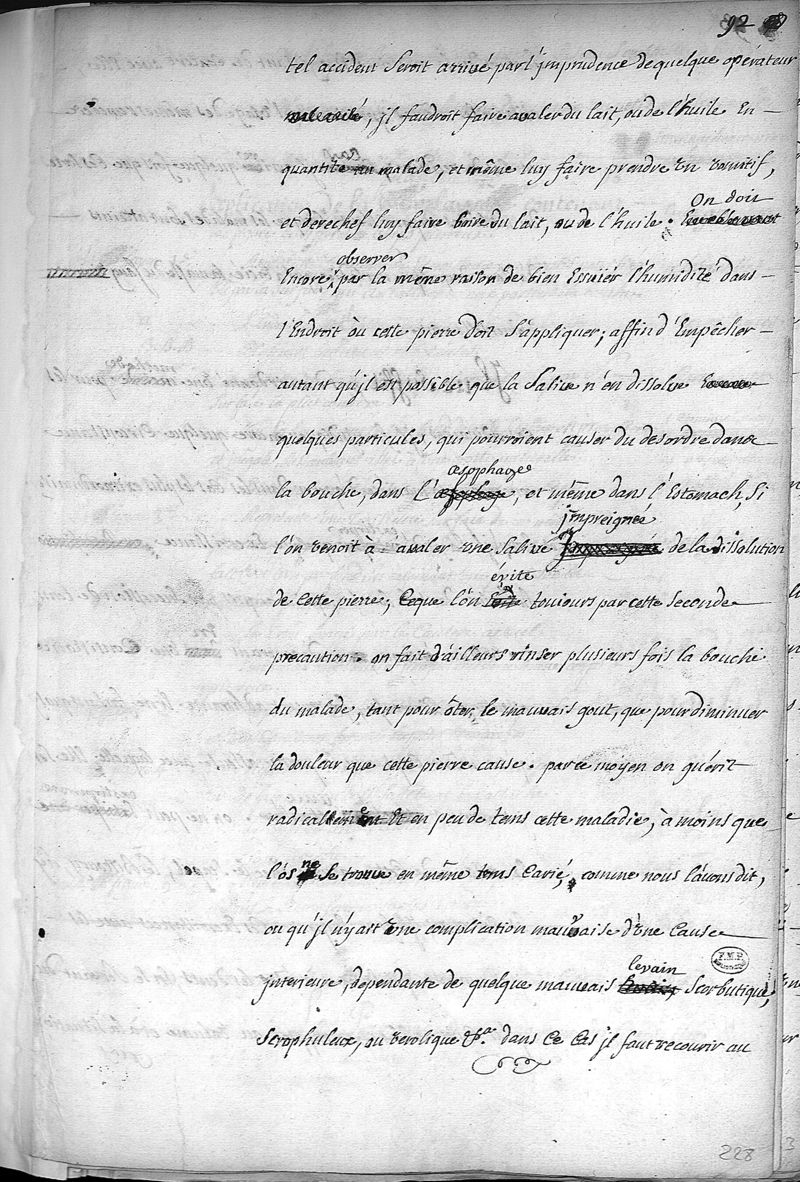 92
tel accident seroit arrivé par l'jmprudence de quelque opérateur
, jl faudroit faire avaler du lait, ou de l'huile en
quantité au malade, et même luy faire prendre un vomitif,
et derechef luy faire boire du lait, ou de l'huile. On doit
encore observer par la même raison de bien essuiér l'humidité dans
l'endroit òu cette pierre doit s'appliquer; affin d'empêcher
autant qu'jl est possible que la salive n'en dissolve
quelques particules, qui pourroient causer du desordre dans
la bouche, dans l'œsophage, et même dans l'estomach, si
l'on venoit à avaler une salive jmpreignée de la dissolution
de cette pierre; ce que l'on évite toujours par cette seconde
precaution. on fait d'ailleurs rinser plusieurs fois la bouche
du malade, tant pour ôter le mauvais gout, que pour diminuer
la douleur que cette pierre cause. par ce moyen on guérit
radicallement et en peu de tems cette maladie, à moins que
l'ós ne se trouve en même tems carié, comme nous l'avons dit,
ou qu'jl n'y ait une complication mauvaise d'une cause
jnterieure, dependante de quelque mauvais levain scorbutique,
scrophuleux, ou verolique &.a dans ce cas jl faut recourir au
228